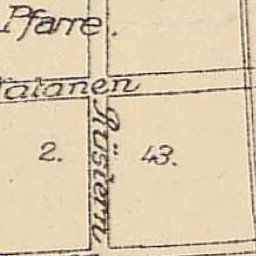 Pfarre.
atanen
Rüstern
2.
43.